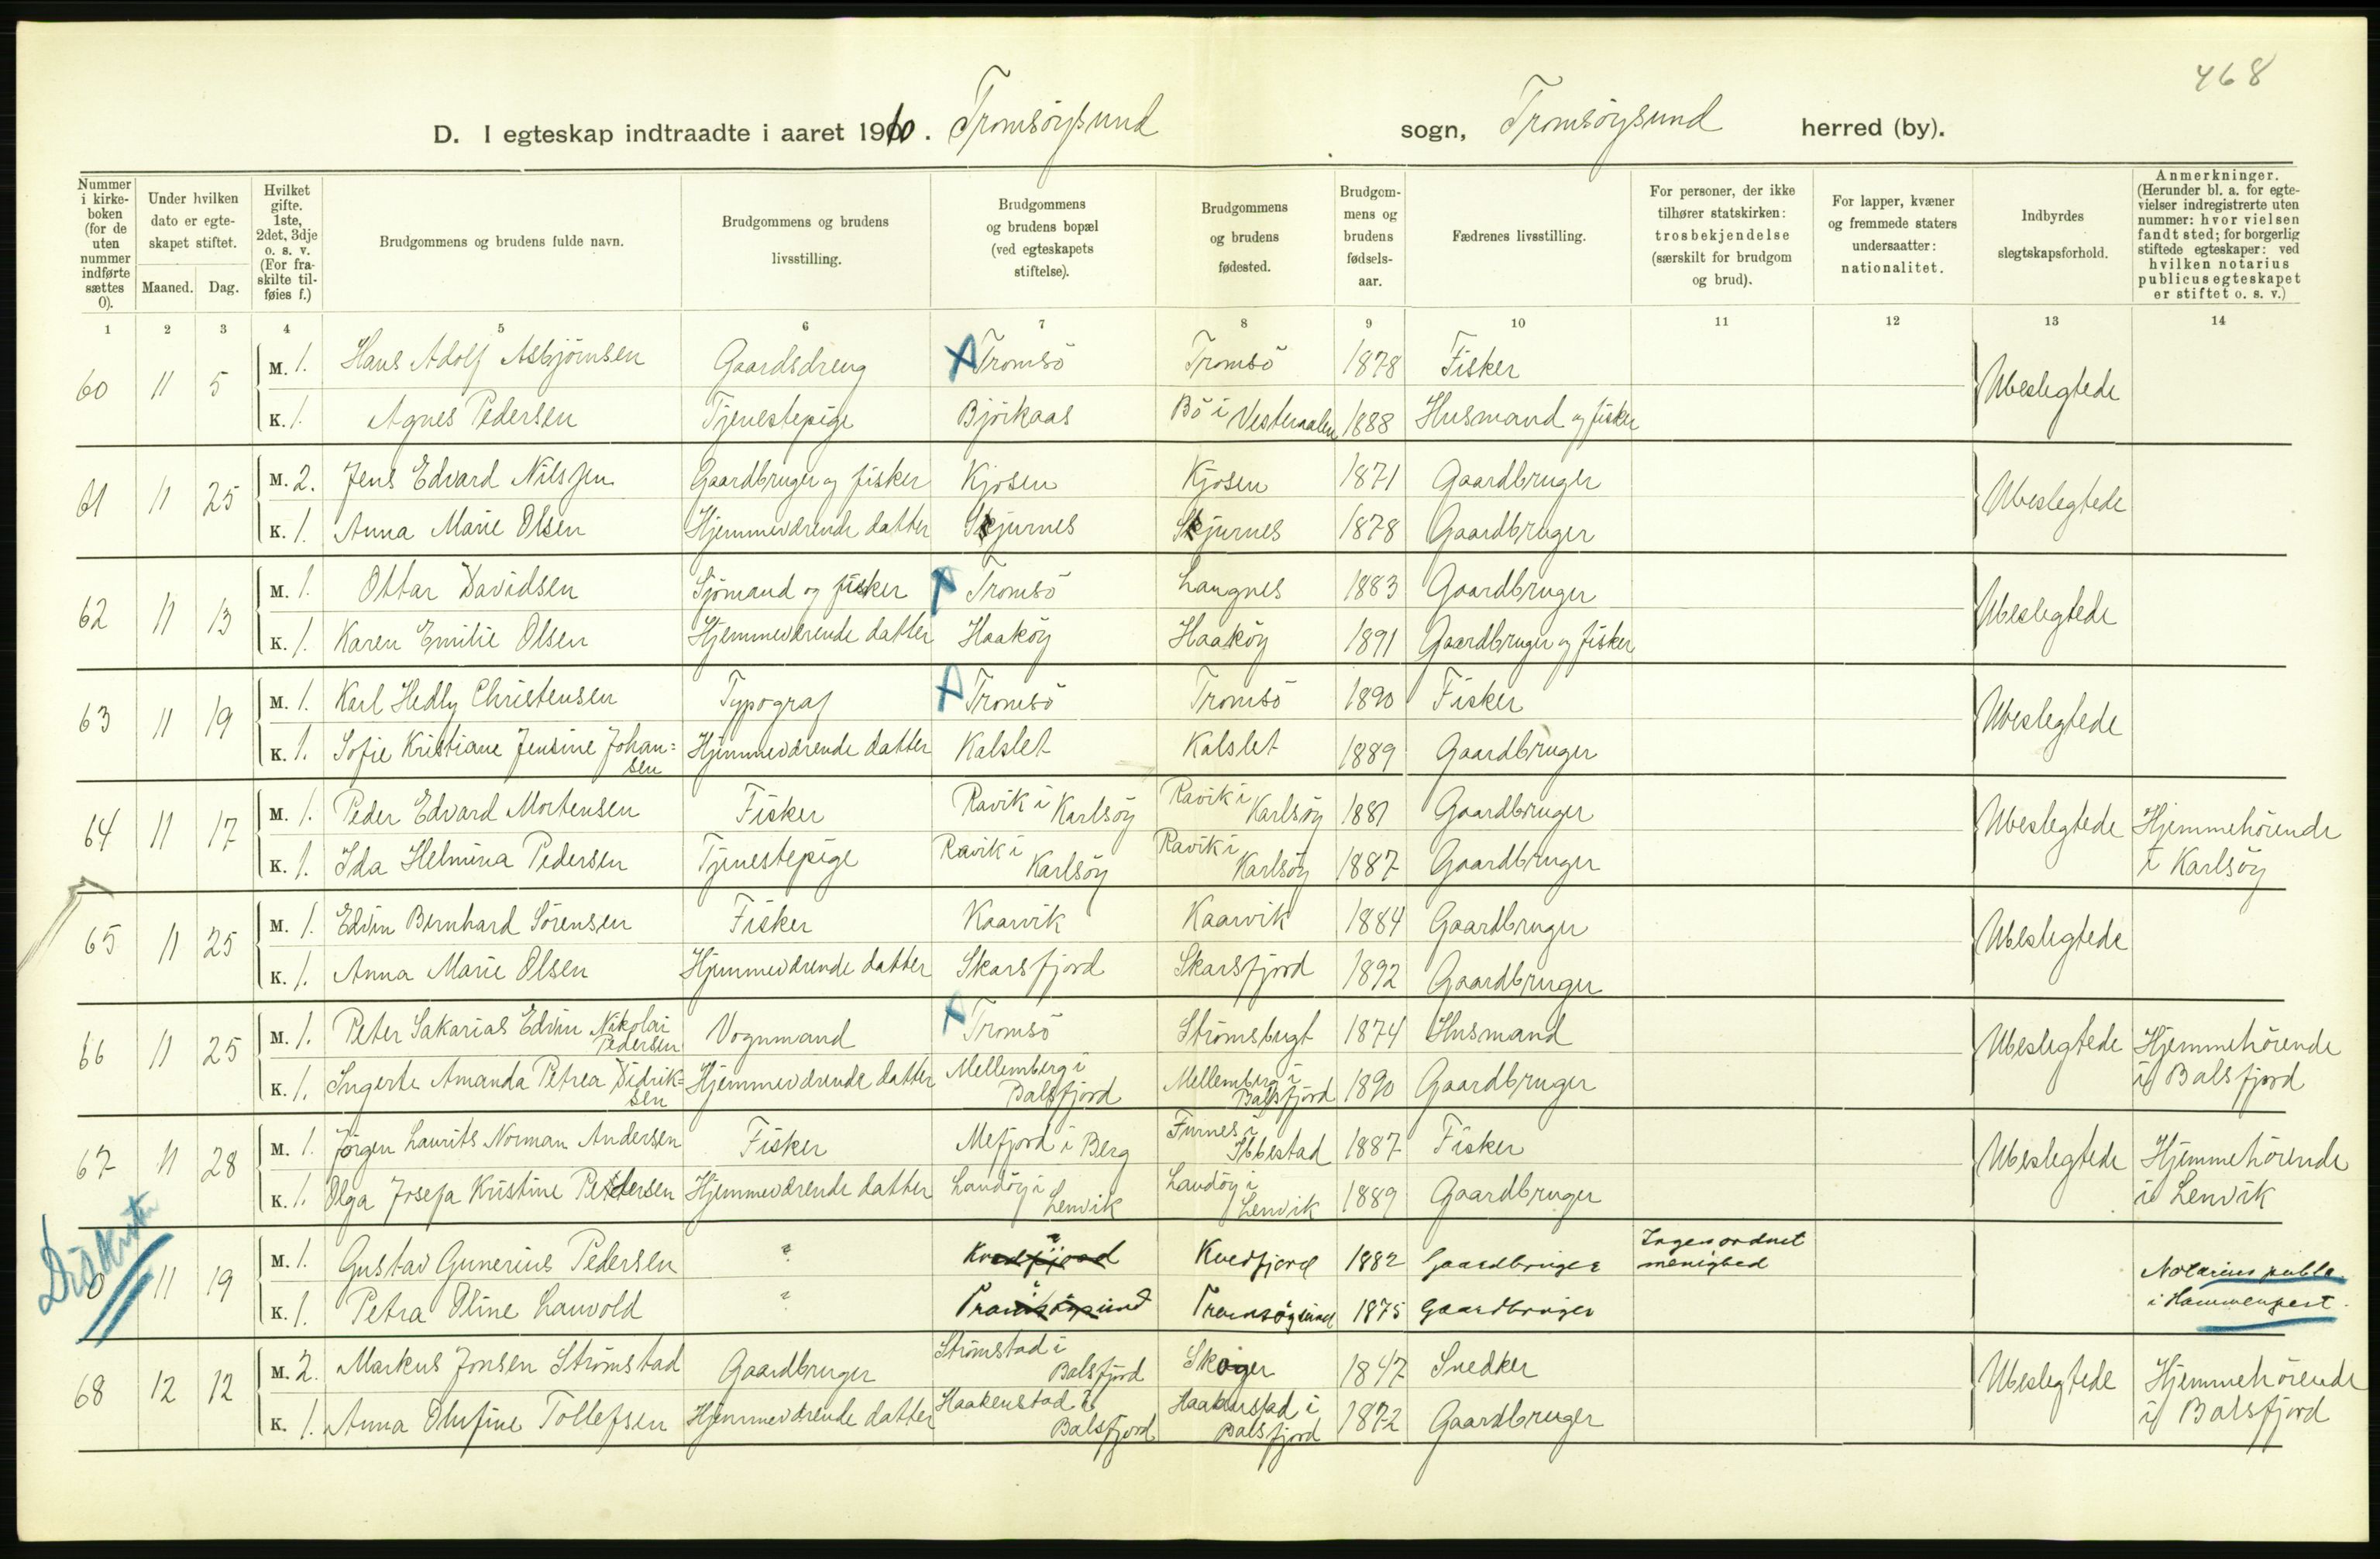 468
D. I egteskap indtraadte i aaret 1910. Tromsöysund sogn, Tromsöysund herred (by).
Nummer i kirkeboken (for de uten nummer indførte sættes 0).
Under hvilken dato er egteskapet stiftet.
Maaned. Dag.
Hvilket gifte. 1ste, 2det, 3dje o. s. v. (For fraskilte tilføies f.)
Brudgommens og brudens fulde navn.
Brudgommens og brudens livsstilling.
Brudgommens og brudens bopæl (ved egteskapets stiftelse).
Brudgommens og brudens fødested.
Brudgommens og brudens fødselsaar.
Fædrenes livsstilling.
For personer, der ikke tilhører statskirken: trosbekjendelse (særskilt for brudgom og brud).
For lapper, kvæner og fremmede staters undersaatter: nationalitet.
Indbyrdes slegtskapsforhold.
Anmerkninger. (Herunder bl. a. for egtevielser indregistrerte uten nummer: hvor vielsen fandt sted; for borgerlig stiftede egteskaper: ved hvilken notarius publicus egteskapet er stiftet o. s. v.)
1 2 3 4 5 6 7 8 9 10 11 12 13 14
60 11 5 M. 1. Hans Adolf Asbjörnsen Gaardsdreng Tromsö Tromsö 1878 Fisker Ubeslegtede
K. 1. Agnes Pedersen Tjenestepige Björkaas Bö i Vesteraalen 1888 Husmand og fisker
61 11 25 M. 2. Jens Edvard Nilssen Gaardbruger og fisker Kjosen Kjosen 1871 Gaardbruger Ubeslegtede
K. 1. Anna Marie Olsen Hjemmeværende datter Skjurnes Skjurnes 1878 Gaardbruger
62 11 13 M. 1. Ottar Davidsen Sjömand og fisker Tromsö Langnes 1883 Gaardbruger Ubeslegtede
K. 1. Karen Emilie Olsen Hjemmeværende datter Haaköy Haaköy 1891 Gaardbruger og fisker
63 11 19 M. 1. Karl Hedly Christensen Typograf Tromsö Tromsö 1890 Fisker Ubeslegtede
K. 1. Sofie Kristiane Jensine Johan=sen Hjemmeværende datter Kalslet Kalslet 1889 Gaardbruger
64 11 17 M. 1. Peder Edvard Mortensen Fisker Ravik i Karlsöy Ravik i Karlsöy 1881 Gaardbruger Ubeslegtede Hjemmehörende
K. 1. Ida Helmina Pedersen Tjenestepige Ravik i Karlsöy Ravik i Karlsöy 1887 Gaardbruger i Karlsöy
65 11 25 M. 1. Edvin Bernhard Sörensen Fisker Kaarvik Kaarvik 1884 Gaardbruger Ubeslegtede
K. 1. Anna Marie Olsen Hjemmeværende datter Skarsfjord Skarsfjord 1892 Gaardbruger
66 11 25 M. 1. Peter Sakarias Edvin Nikolai Pedersen Vognmand Tromsö Strömsbugt 1874 Husmand Ubeslegtede Hjemmehörende
K. 1. Ingerte Amanda Petrea Didrik=sen Hjemmeværende datter Mellemberg i Balsfjord Mellemberg i Balsfjord 1890 Gaardbruger i Balsfjord
67 11 28 M. 1. Jörgen Laurits Norman Andersen Fisker Mefjord i Berg Furnes i Ibbestad 1887 Fisker Ubeslegtede Hjemmehörende
K. 1. Olga Josefa Kristine Pedersen Hjemmeværende datter Landöy i Lenvik Landöy i Lenvik 1889 Gaardbruger i Lenvik
0 11 19 M. 1. Gustav Gunerius Pedersen ? Kvedfjord ? Kvedfjord 1882 Gaardbruger Ingen ordnet menighed Notarius publ.
K. 1. Petra Oline Lauvold ? Tromsöysund ? Tromsöysund 1875 Gaardbruger i Hammerfest.
68 12 12 M. 2. Markus Jonsen Strömstad Gaardbruger Strömstad i Balsfjord Skoger 1847 Snedker Ubeslegtede Hjemmehörende
K. 1. Anna Olufine Tollefsen Hjemmeværende datter Haakenstad i Balsfjord Haakenstad i Balsfjord 1872 Gaardbruger i Balsfjord